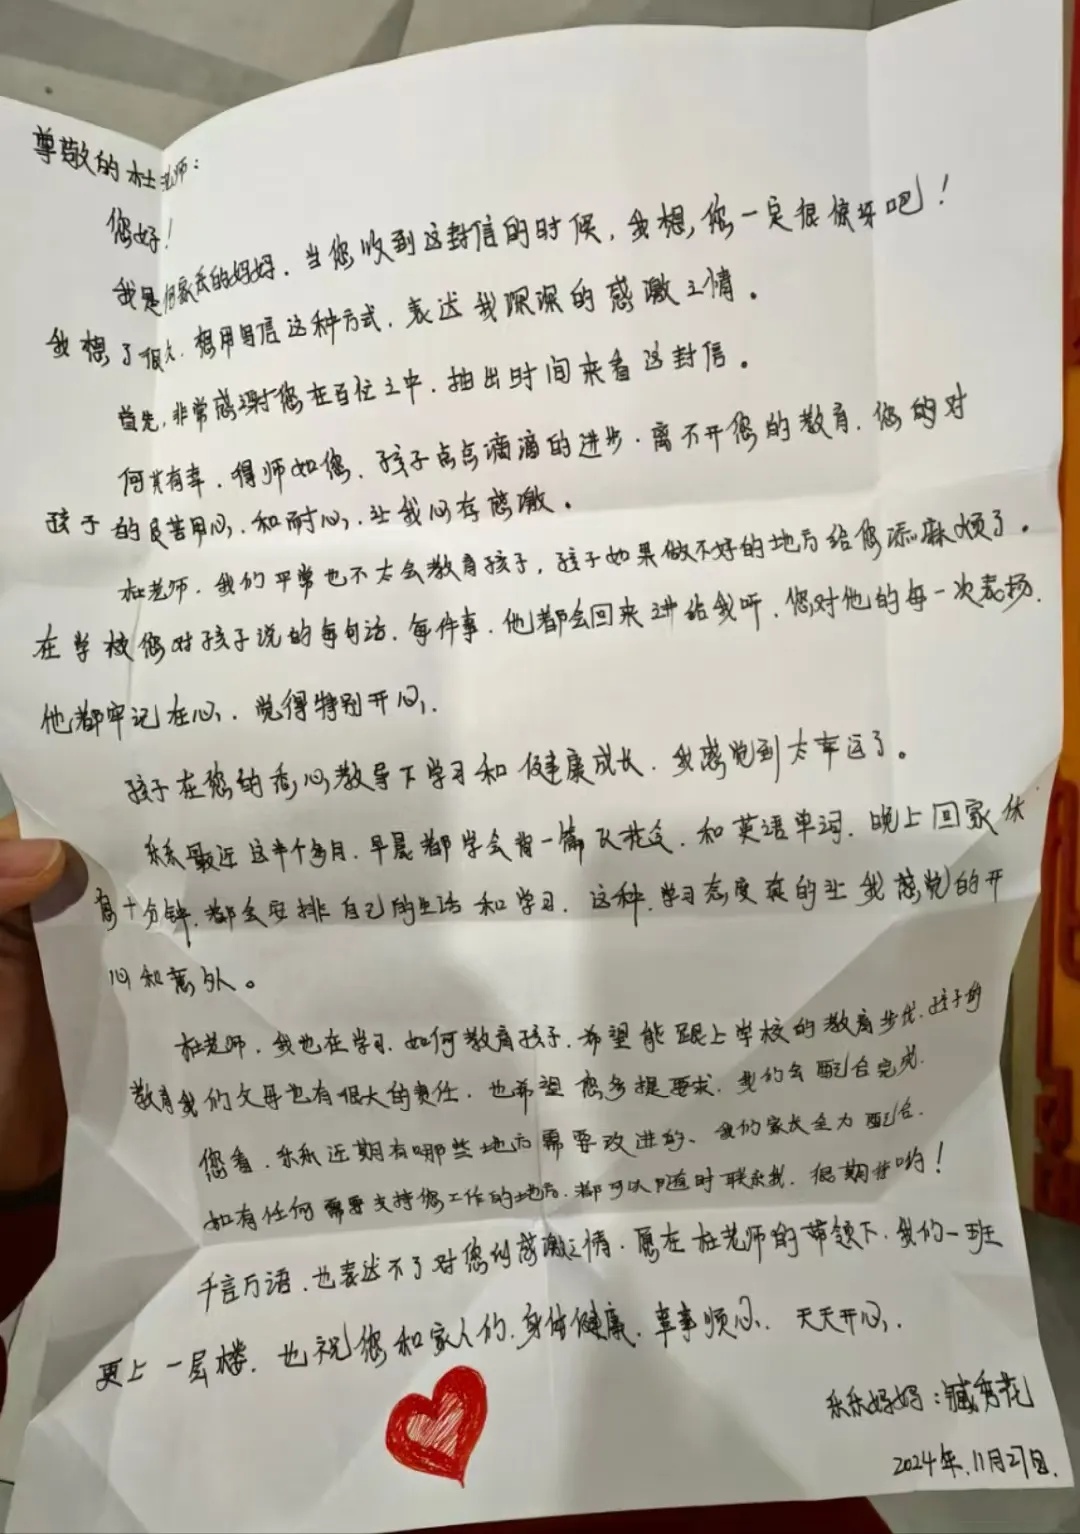 尊敬的杜老师：
您好！
我是何家乐的妈妈，当您收到这封信的时候，我想，您一定很惊讶吧！
我想了很久，想用写信这种方式，表达我深深的感激之情。
首先，非常感谢您在百忙之中，抽出时间来看这封信。
何其有幸，得师如您，孩子点点滴滴的进步，离不开您的教育，您的对
孩子的良苦用心，和耐心，让我心存感激。
杜老师，我们平常也不太会教育孩子，孩子如果做不好的地方给您添麻烦了。
在学校您对孩子说的每句话，每件事，他都会回来讲给我听，您对他的每一次表扬，
他都牢记在心，觉得特别开心，
孩子在您的悉心教导下学习和健康成长，我感觉到太幸运了。
乐乐最近这半个多月，早晨都学会背一篇文，和英语单词，晚上回家休
息十分钟，都会安排自己的生活和学习，这种，学习态度真的让我感觉的开
心和意外。
杜老师，我也在学习，如何教育孩子，希望能跟上学校的教育步伐，孩子的
教育我们父母也有很大的责任，也希望您多提要求，我们会配合完成，
您看，乐乐近期有哪些地方需要改进的、我们家长全力配合，
如有任何需要支持您工作的地方，都可以随时联系我，很期待哟！
千言万语，也表达不了对您的感激之情，愿在杜老师的带领下，我们一班
更上一层楼，也祝您和家人们，身体健康，事事顺心，天天开心，
乐乐妈妈：臧秀花
2024年，11月27日，